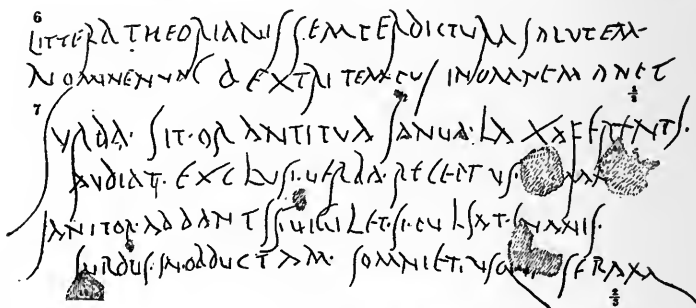 6
LITTERA THEORIANIS SEMPER DICTURA SALUTEM
NOMINE NUNC DEXTRI TEMPUS IN OMNE MANET
7
SURDA · SIT · ORANTI TUA IANUA · LAXA FERENTI ·
AUDIAT · EXCLUSI · VERBA · RECEPTUS ·
IANITOR · AD DANTIS VIGILET · SI · PULSAT · INANIS ·
SURDUS · IN · OBDUCTAM · SOMNIET · USQUE SERAM